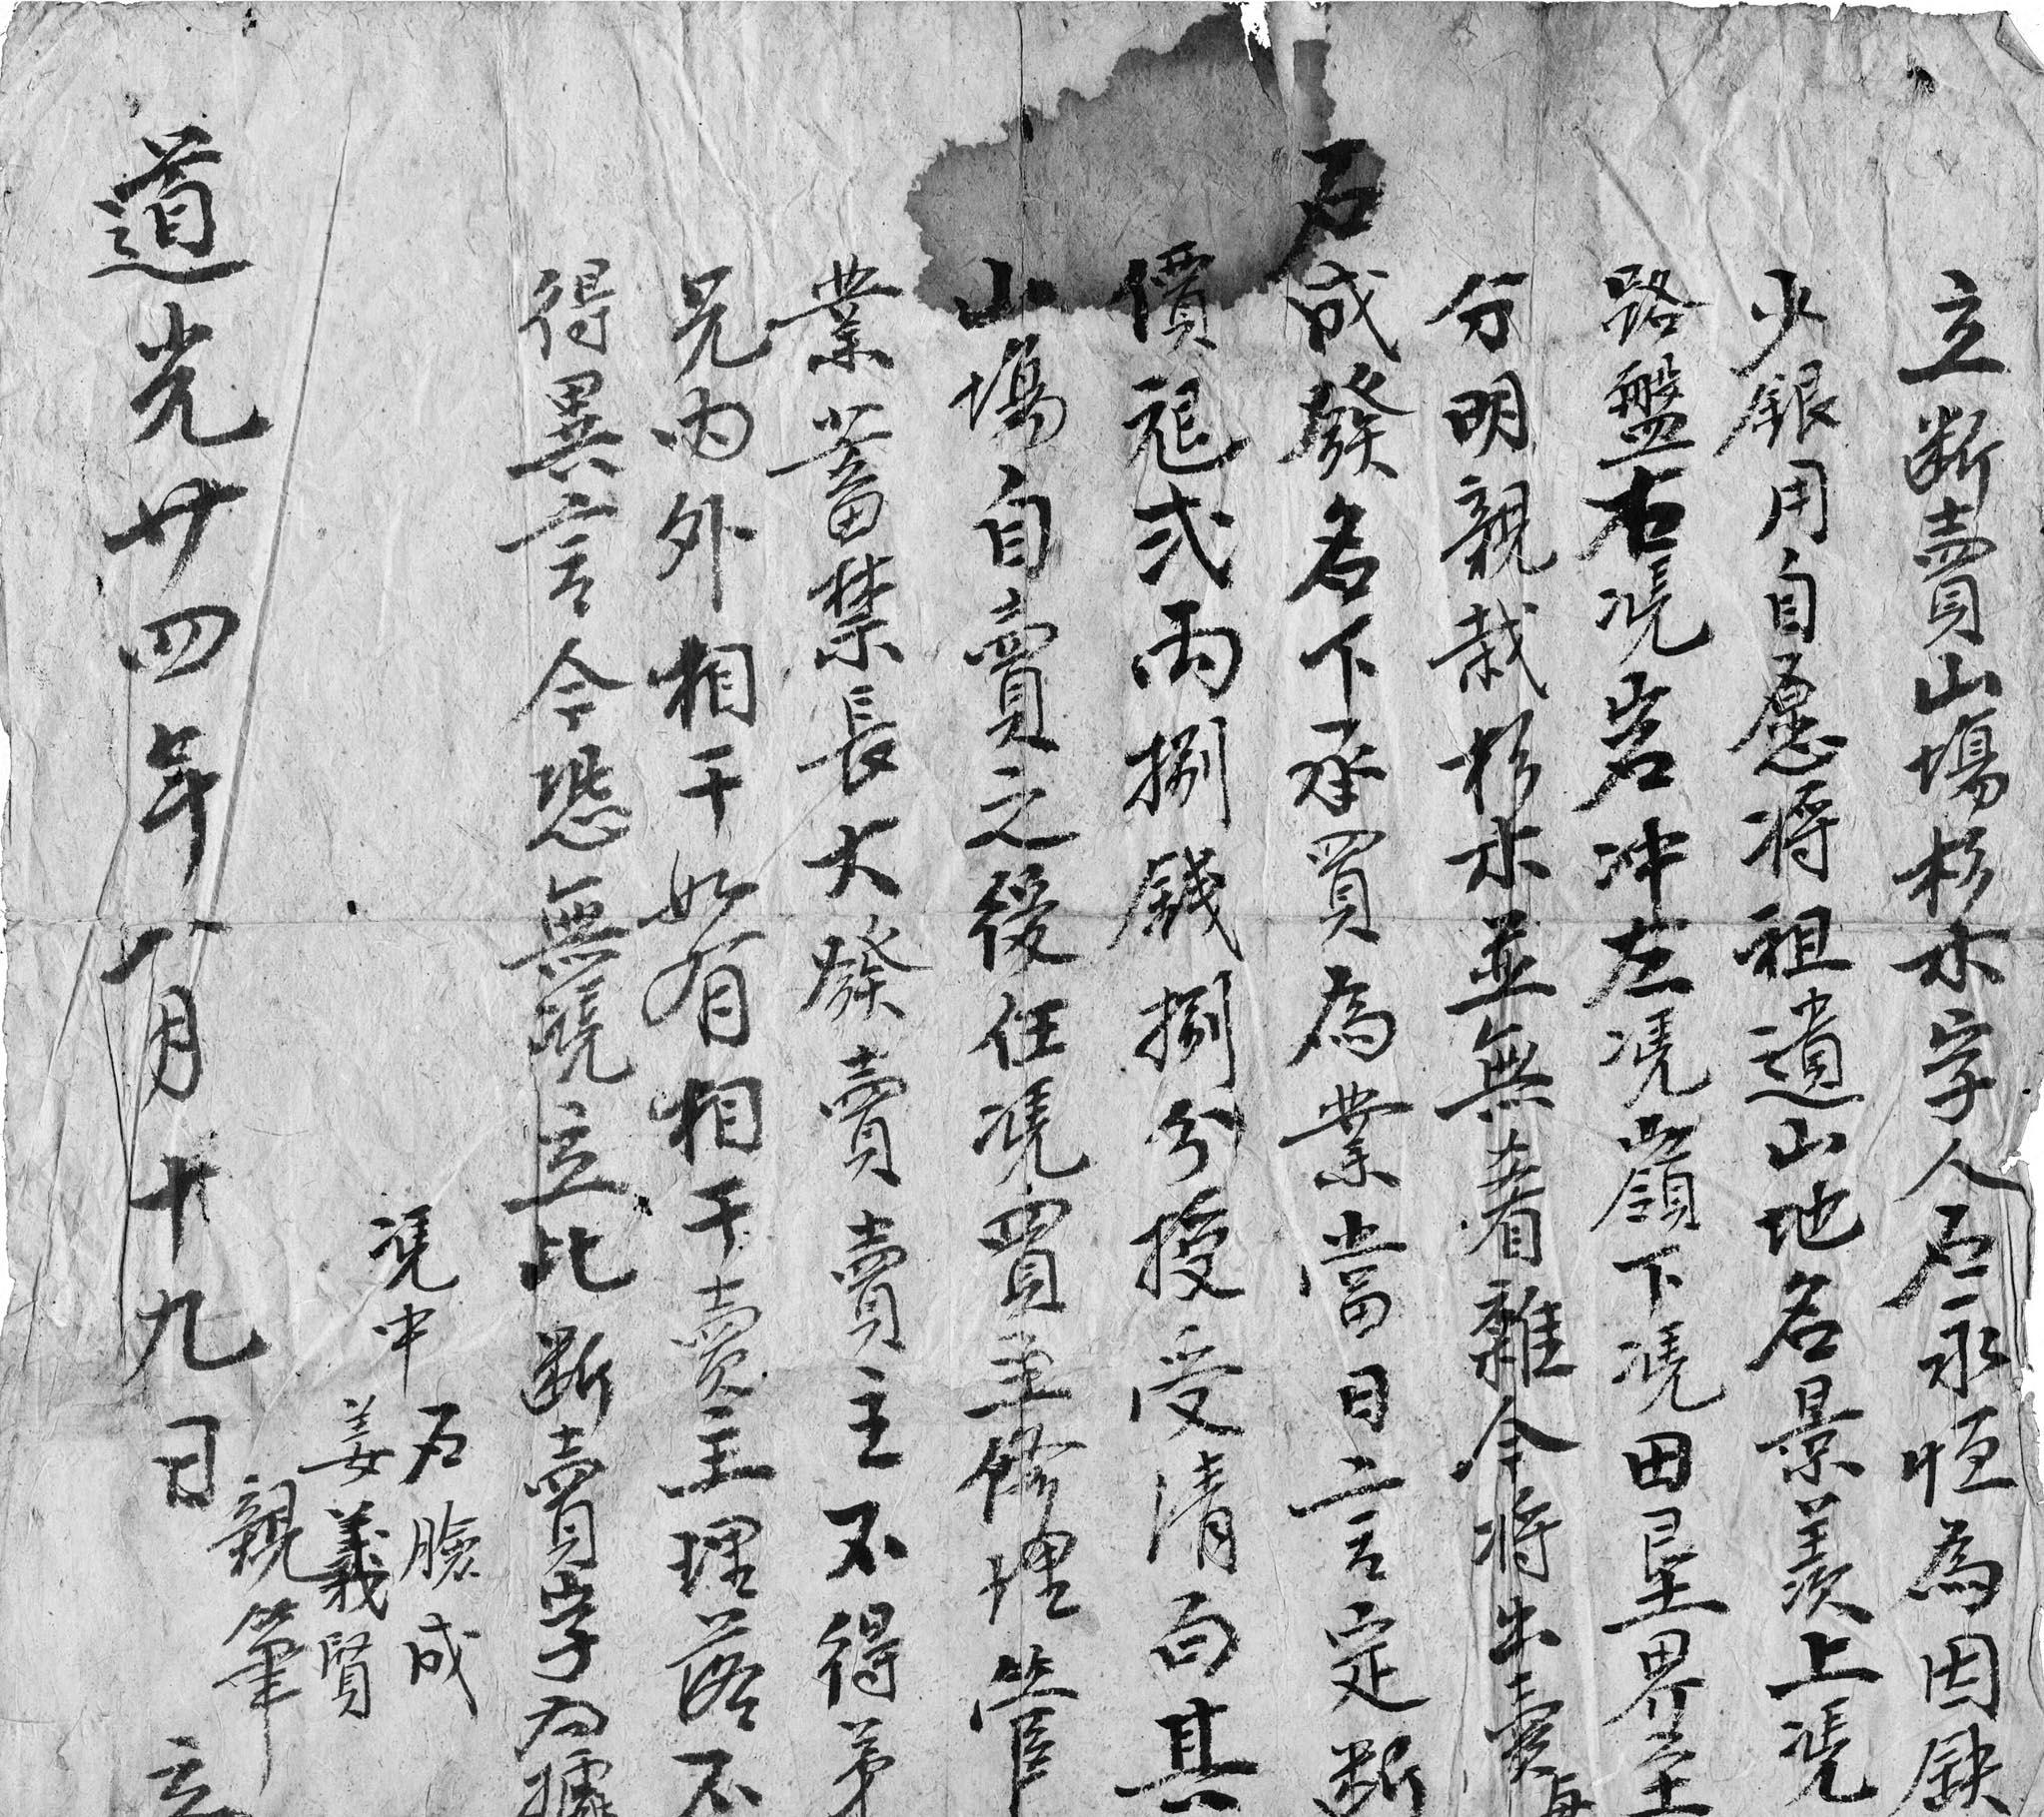 立断賣山塲杉木字人石永恒為因缺
少銀用自愿將祖遺山地名景羨上凴
路盤右凴岩冲左凴嶺下凴田墾界至
分明親栽杉木並無着雜今將出賣與
石成發名下承買為業當日言定断
價銀弍両捌錢捌分授受清白其
山塲自賣之後任凴買主修理管
業蓄禁長大發賣賣主不得弟
兄内外相干如有相干賣主理落不
得異言今恐無凴立此断賣字為據
凴中 石臉成
姜義賢
親筆
道光廿四年八月十九日 立